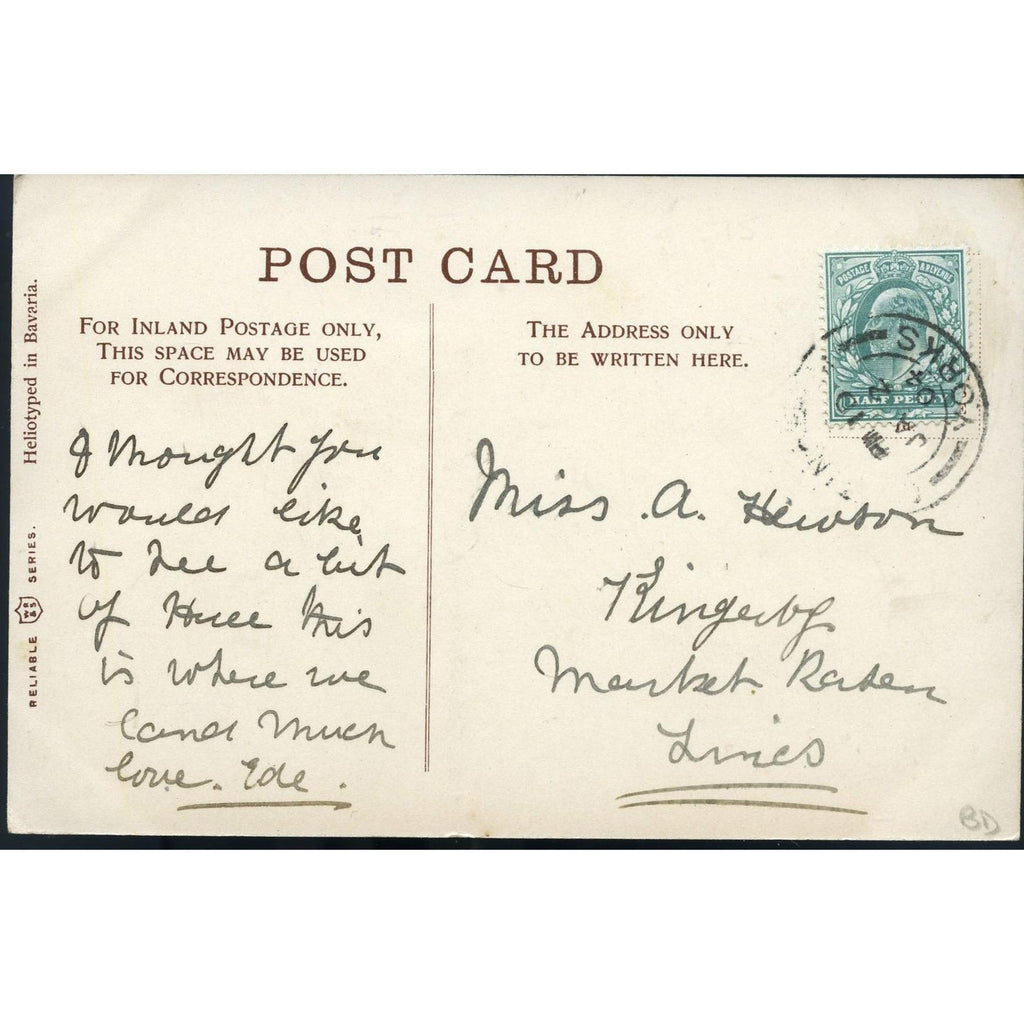 POST CARD
FOR INLAND POSTAGE ONLY,
THIS SPACE MAY BE USED
FOR CORRESPONDENCE.
THE ADDRESS ONLY
TO BE WRITTEN HERE.
POSTAGE & REVENUE
HALF PENNY
YORKS
Heliotyped in Bavaria.
RELIABLE WR&S SERIES.
I thought you
would like
to see a bit
of Hull this
is where we
land much
love. Ede.
Miss A. Hewson
Kingerby
Market Rasen
Lincs
BD